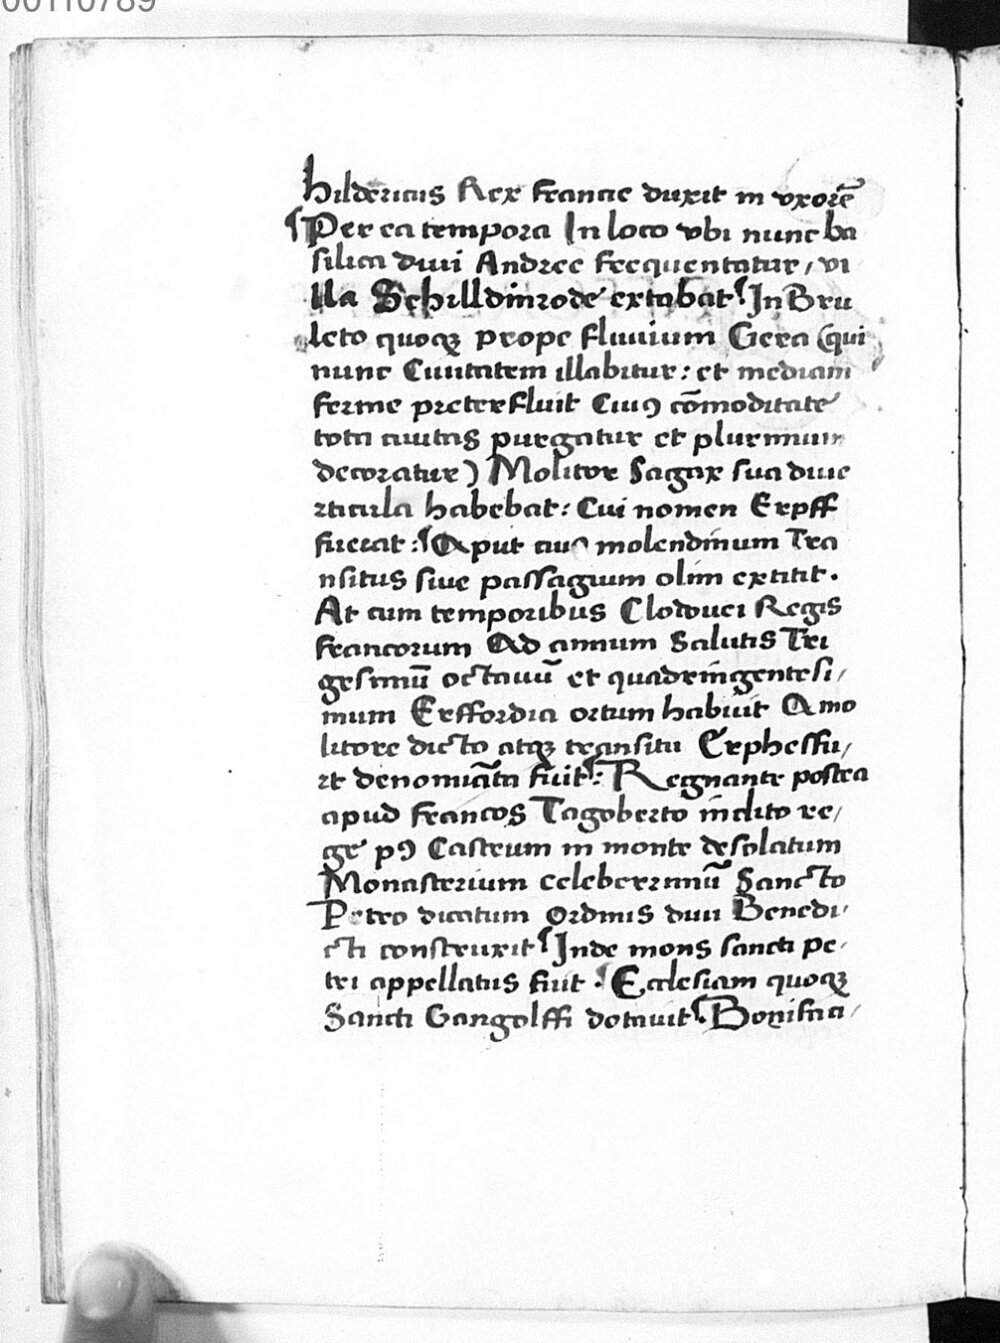 00110789
hildericus Rex francie duxit in vxorē
¶Per ea tempora In loco vbi nunc ba
silica diui Andree frequentatur, vi
lla Schilldinrode extabat ¶In Bru
leto quoqꝫ prope fluuium Gera (qui
nunc Ciuitatem illabitur: et mediam
ferme preterfluit Ciuꝰ cōmoditate
tota ciuitas purgatur et plurimum
decoratur) Molitor Sagax sua diue
rticula habebat: Cui nomen Erpff
fuerat: ¶Aput ciuꝰ molendinum Tra
nsitus siue passagium olim extitit.
At cum temporibus Clodouei Regis
francorum Ad annum Salutis Tri
gesimū octauū et quadringentesi/
mum Erffordia ortum habuit A mo
litore dicto atqꝫ transitu Erphessu/
rt denomīata fuit: ¶Regnante postea
apud francos Tagoberto inclito re/
ge pꝰ Castrum in monte desolatum
Monasterium celeberrimū Sancto
Petro dicatum Ordinis diui Benedi/
cti construxit ¶Inde mons sancti pe/
tri appellatus fuit. ¶Ecclesiam quoqꝫ
Sancti Gangolffi dotauit. ¶Bonifaci/